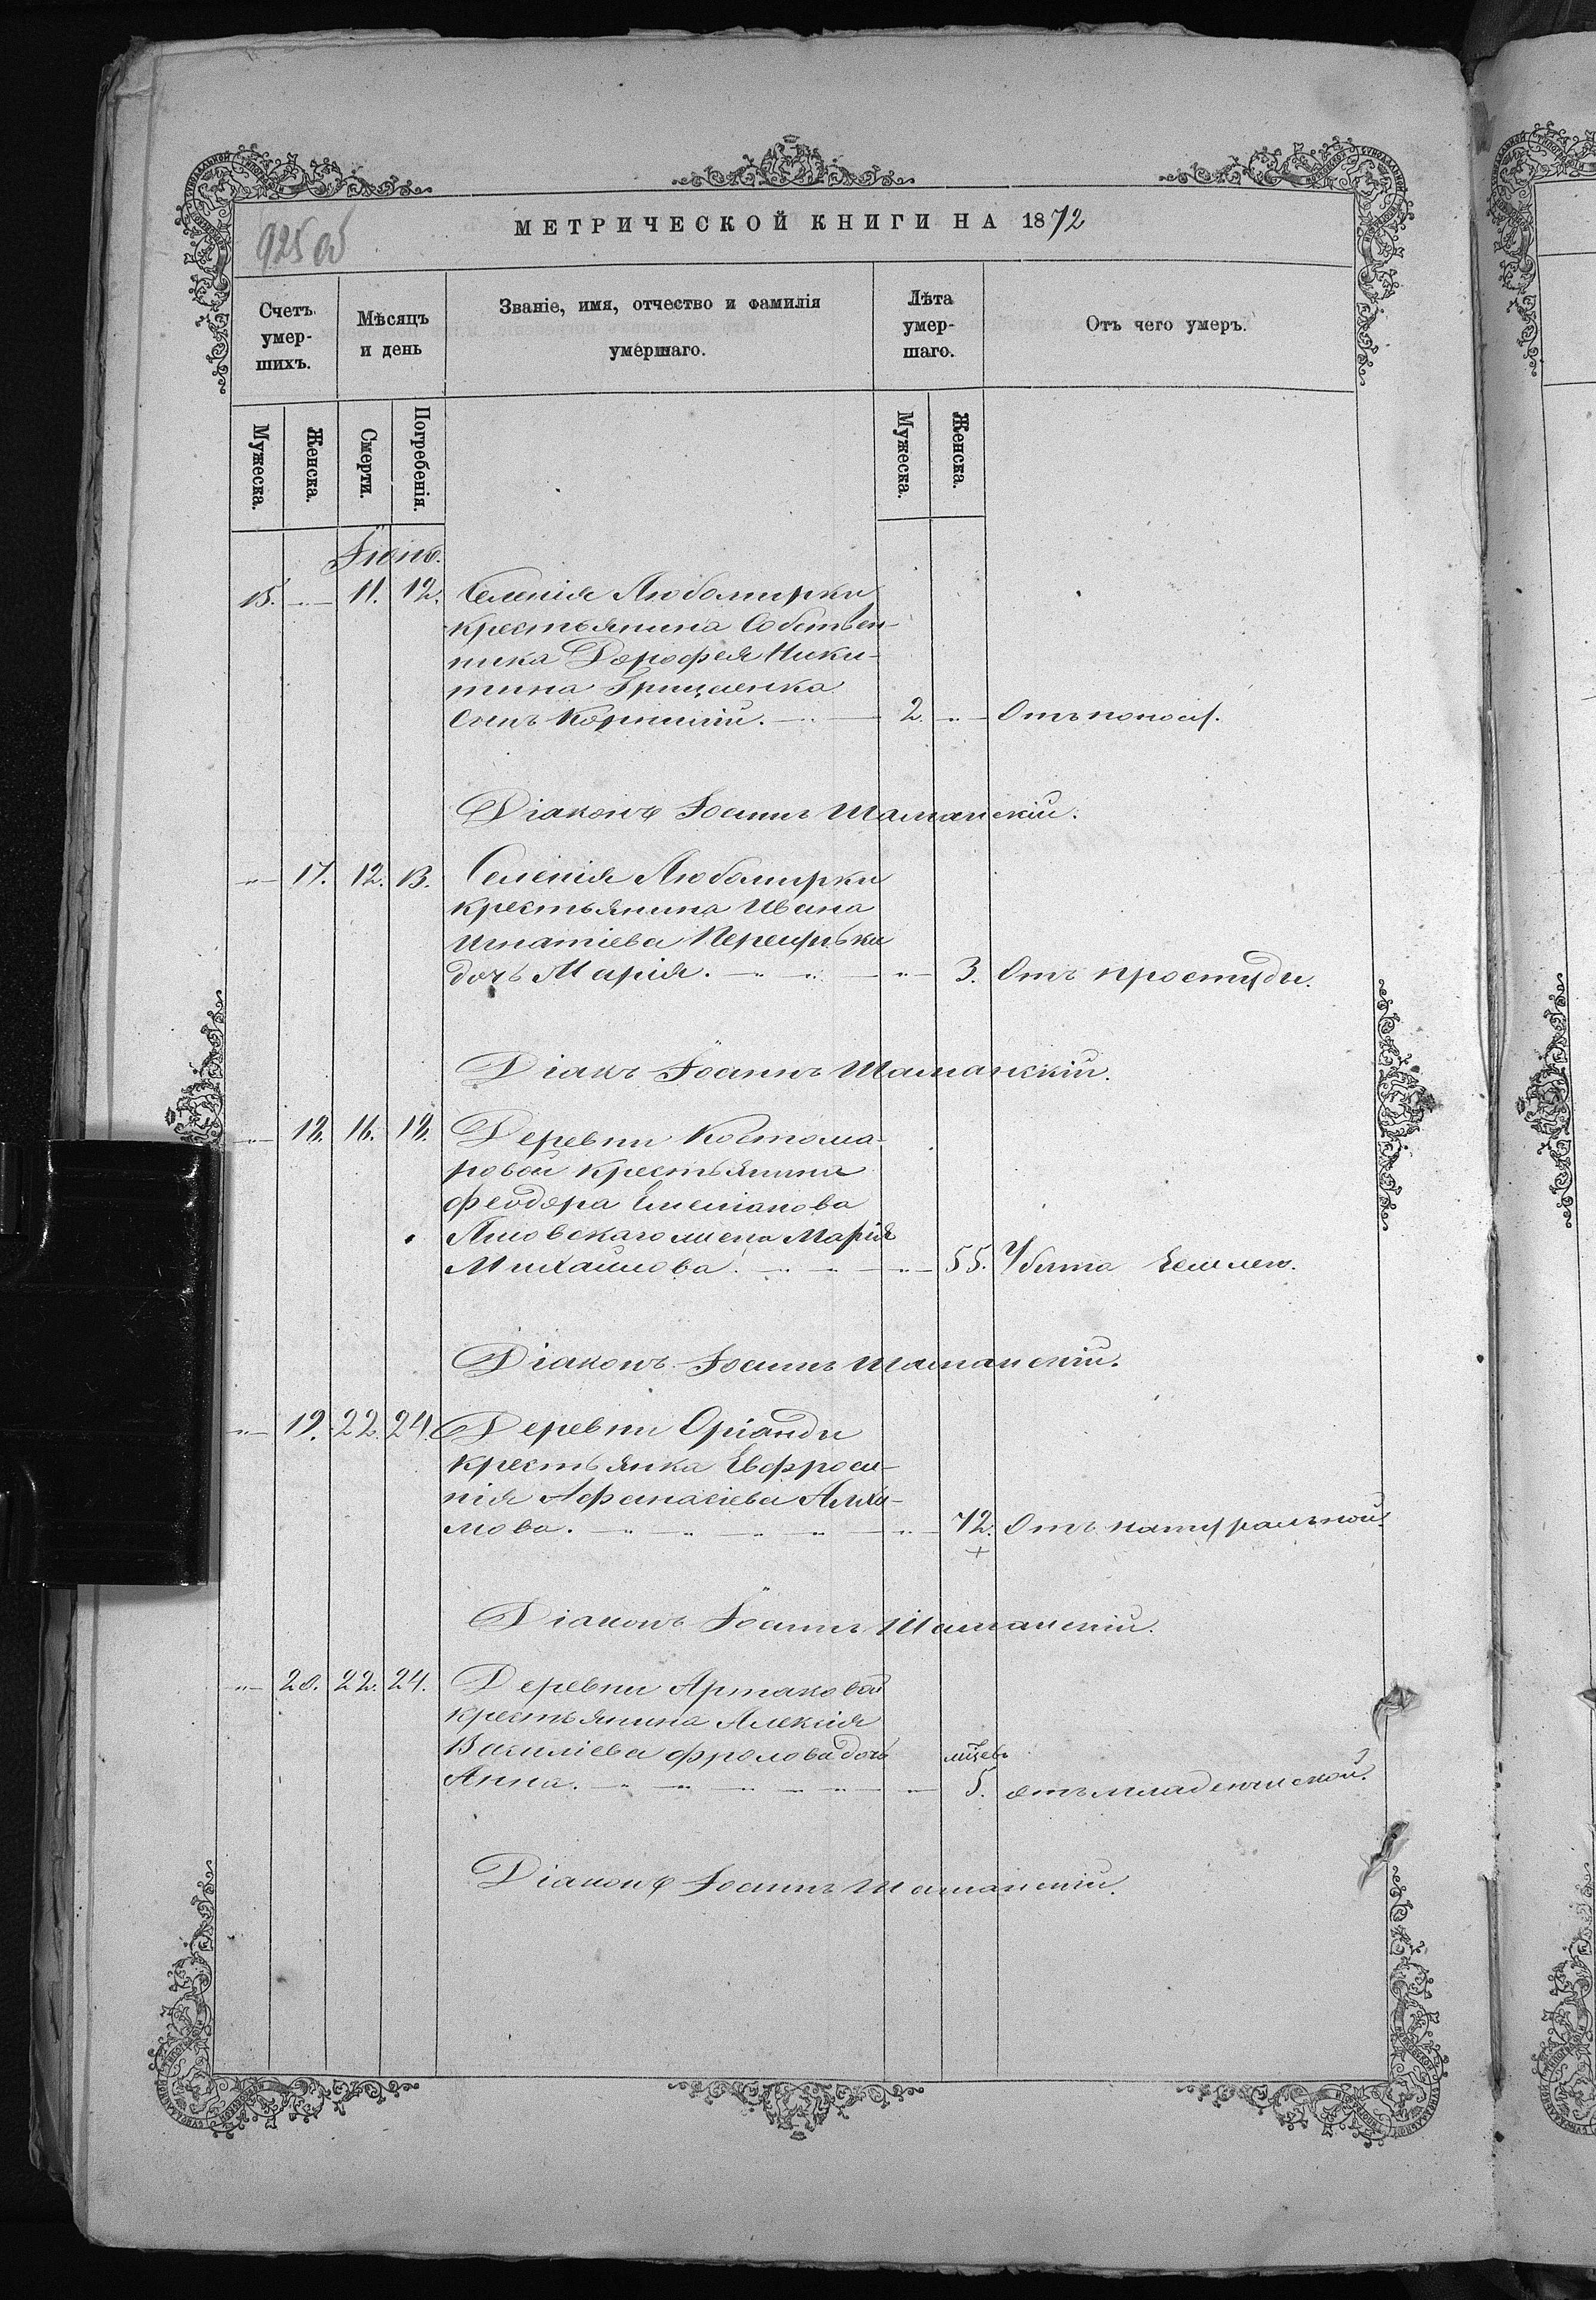 925 об
МЕТРИЧЕСКОЙ КНИГИ НА 1872
Счетъ умер-шихъ.
Мѣсяцъ и день
Званіе, имя, отчество и фамилія умершаго.
Лѣта умер-шаго.
Отъ чего умеръ.
Мужеска.
Женска.
Смерти.
Погребенія.
Мужеска.
Женска.
Іюнь.
15. 11. 12. Селенія Любомирки
крестьянина Собствен-
ника Дорофея Ники-
тина Грищенка
Сынъ Корнилій. 2. Отъ поноса.
Діаконъ Іоаннъ Шаманскій.
17. 12. 13. Селенія Любомирки
крестьянина Ивана
Игнатіева
дочь Марія. 3. Отъ простуды.
Діакъ Іоаннъ Шаманскій.
18. 16. 18. Деревни Костома-
ровой крестьянина
Феодора Емеліанова
жена Марія
Михайлова. 55. Убита землею.
Діаконъ Іоаннъ Шаманскій.
19. 22. 24. Деревни Оріанды
крестьянка Евфроси-
нія Афанасіева
мова. 72. Отъ натуральной.
Діаконъ Іоаннъ Шаманскій.
20. 22. 24. Деревни Армаковой
крестьянина Алексія
Василіева Фролова дочь
Анна. 5. отъ младенческой.
Діаконъ Іоаннъ Шаманскій.